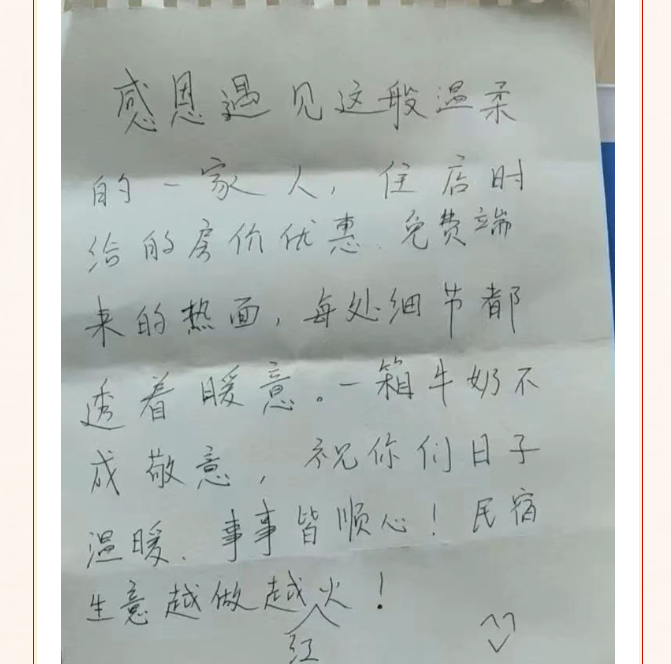 感恩遇见这般温柔
的一家人,住店时
给的房价优惠、免费端
来的热面,每处细节都
透着暖意。一箱牛奶不
成敬意,祝你们日子
温暖、事事皆顺心!民宿
生意越做越红火!